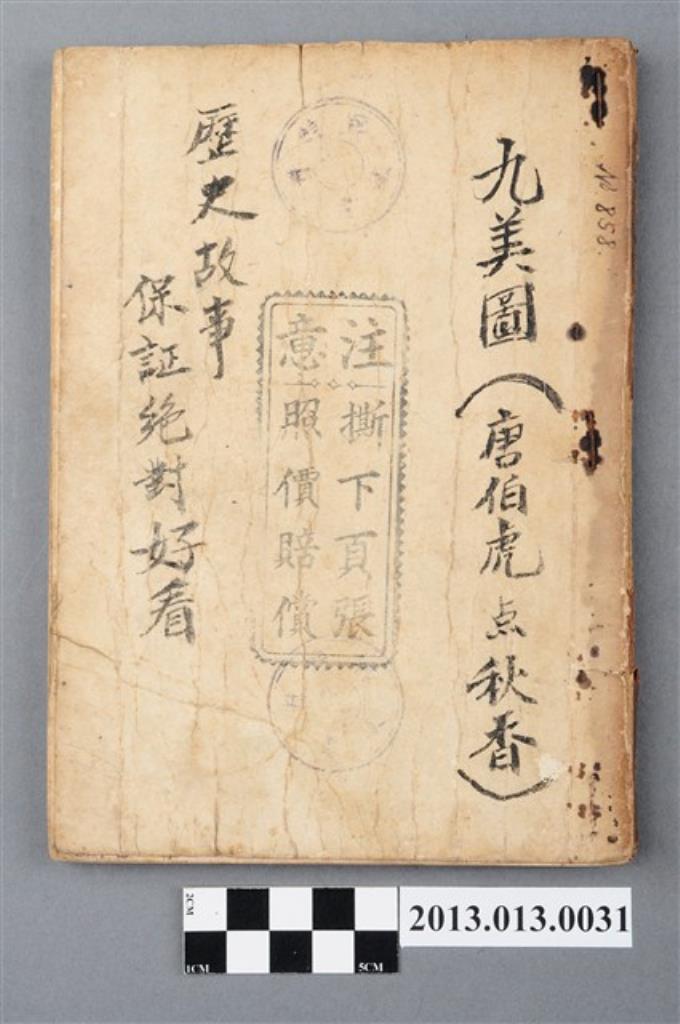 九美圖（唐伯虎点秋香）
№ 858.
注意
撕下頁張
照價賠償
歷史故事
保証絕對好看
2013.013.0031
2CM
1CM
5CM